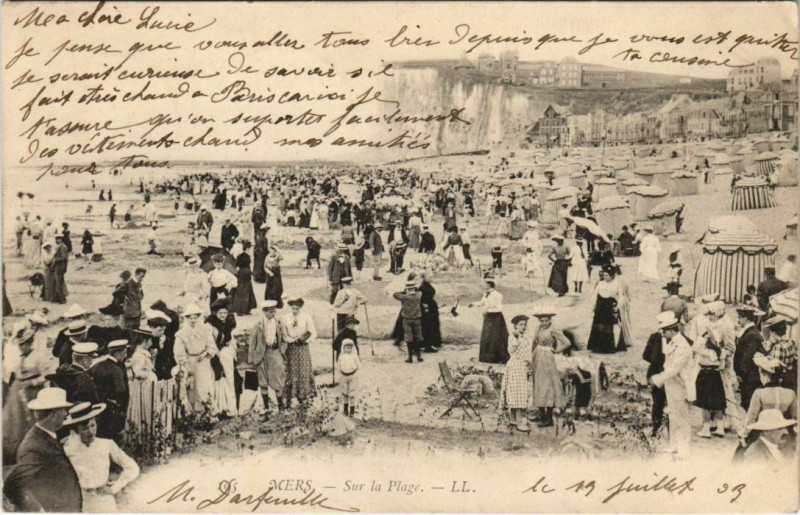 Ma chère Lucie
Je pense que vous aller tous bien Depuis que je vous est quitter
Je serait curieuse De savoir s'il ta cousine
fait très chaud a
t'assure qu'on suporter facilement
Des vêtements chaud mes amitiés
pour tous
95 MERS. — Sur la Plage. — LL.
M. Darfeuille le 19 juillet 03